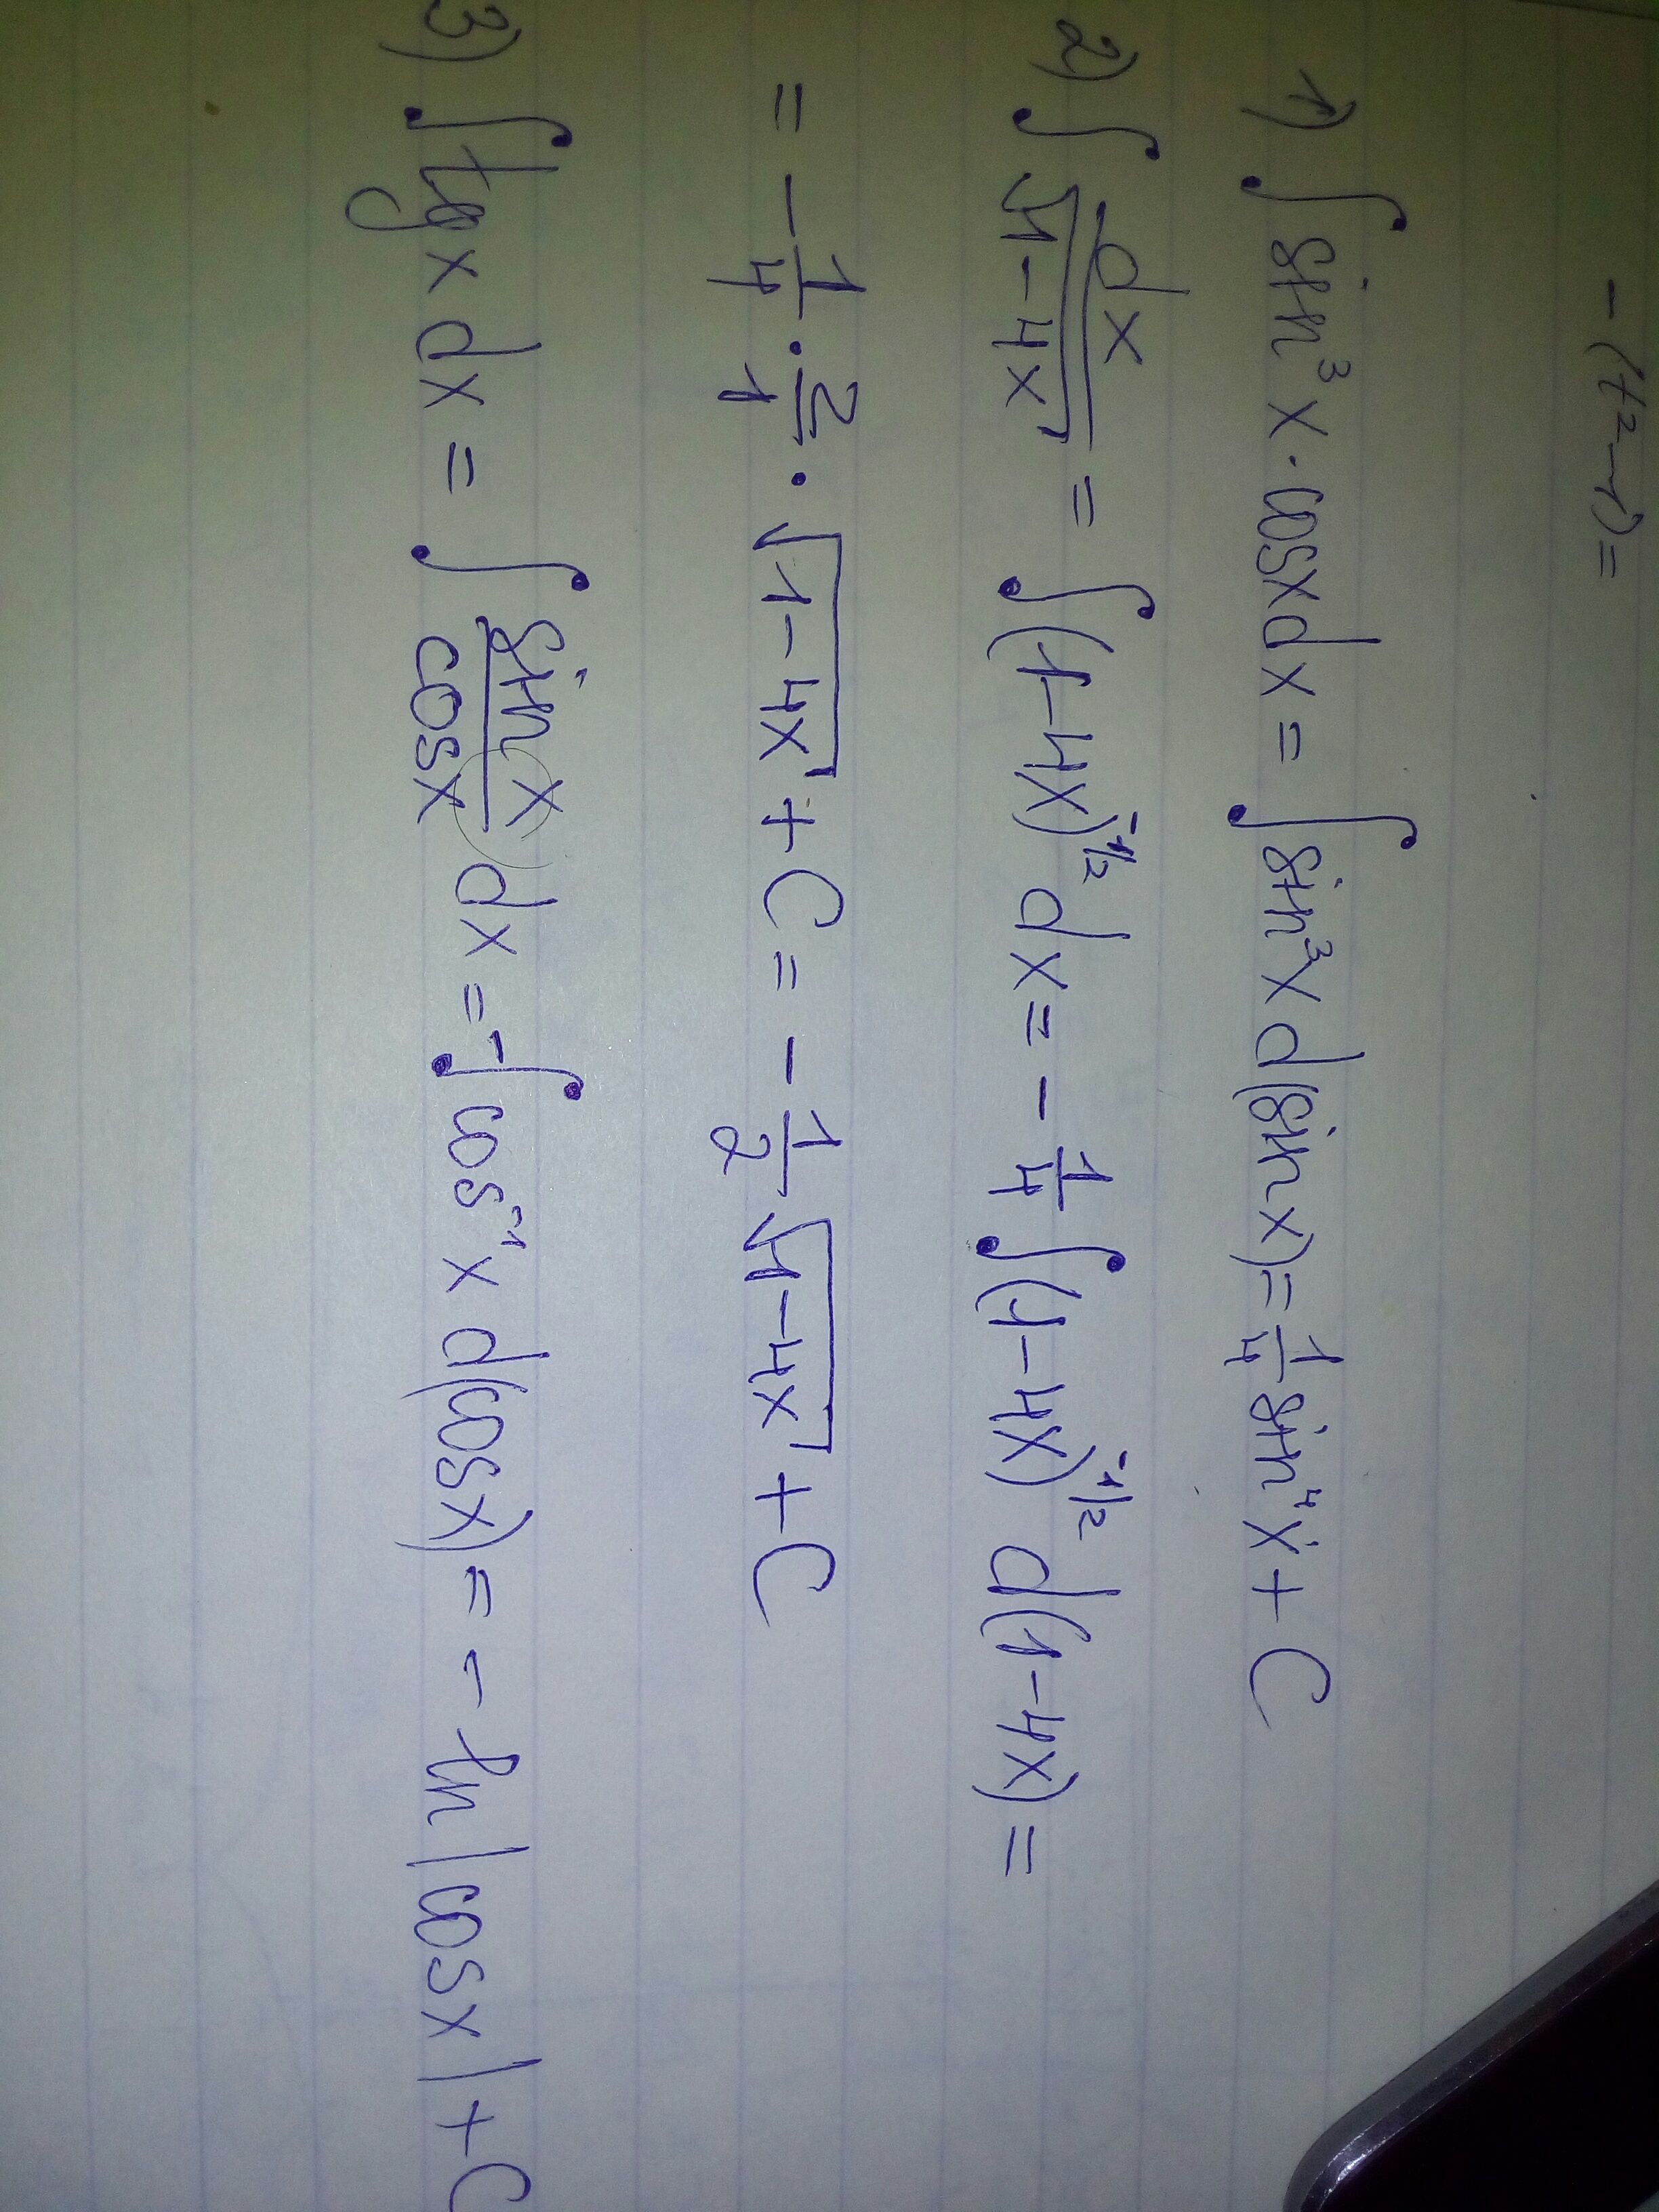 - (t²-1) =
1) ∫ sin³x · cosx dx = ∫ sin³x d(sin x) = 1/4 sin⁴x + C
2) ∫ dx/√(1-4x) = ∫ (1-4x)^(-1/2) dx = - 1/4 ∫ (1-4x)^(-1/2) d(1-4x) =
= - 1/4 · 2/1 · √(1-4x) + C = - 1/2 √(1-4x) + C
3) ∫ tg x dx = ∫ sin x/cos x dx = - ∫ cos⁻¹x d(cosx) = - ln |cosx| + C